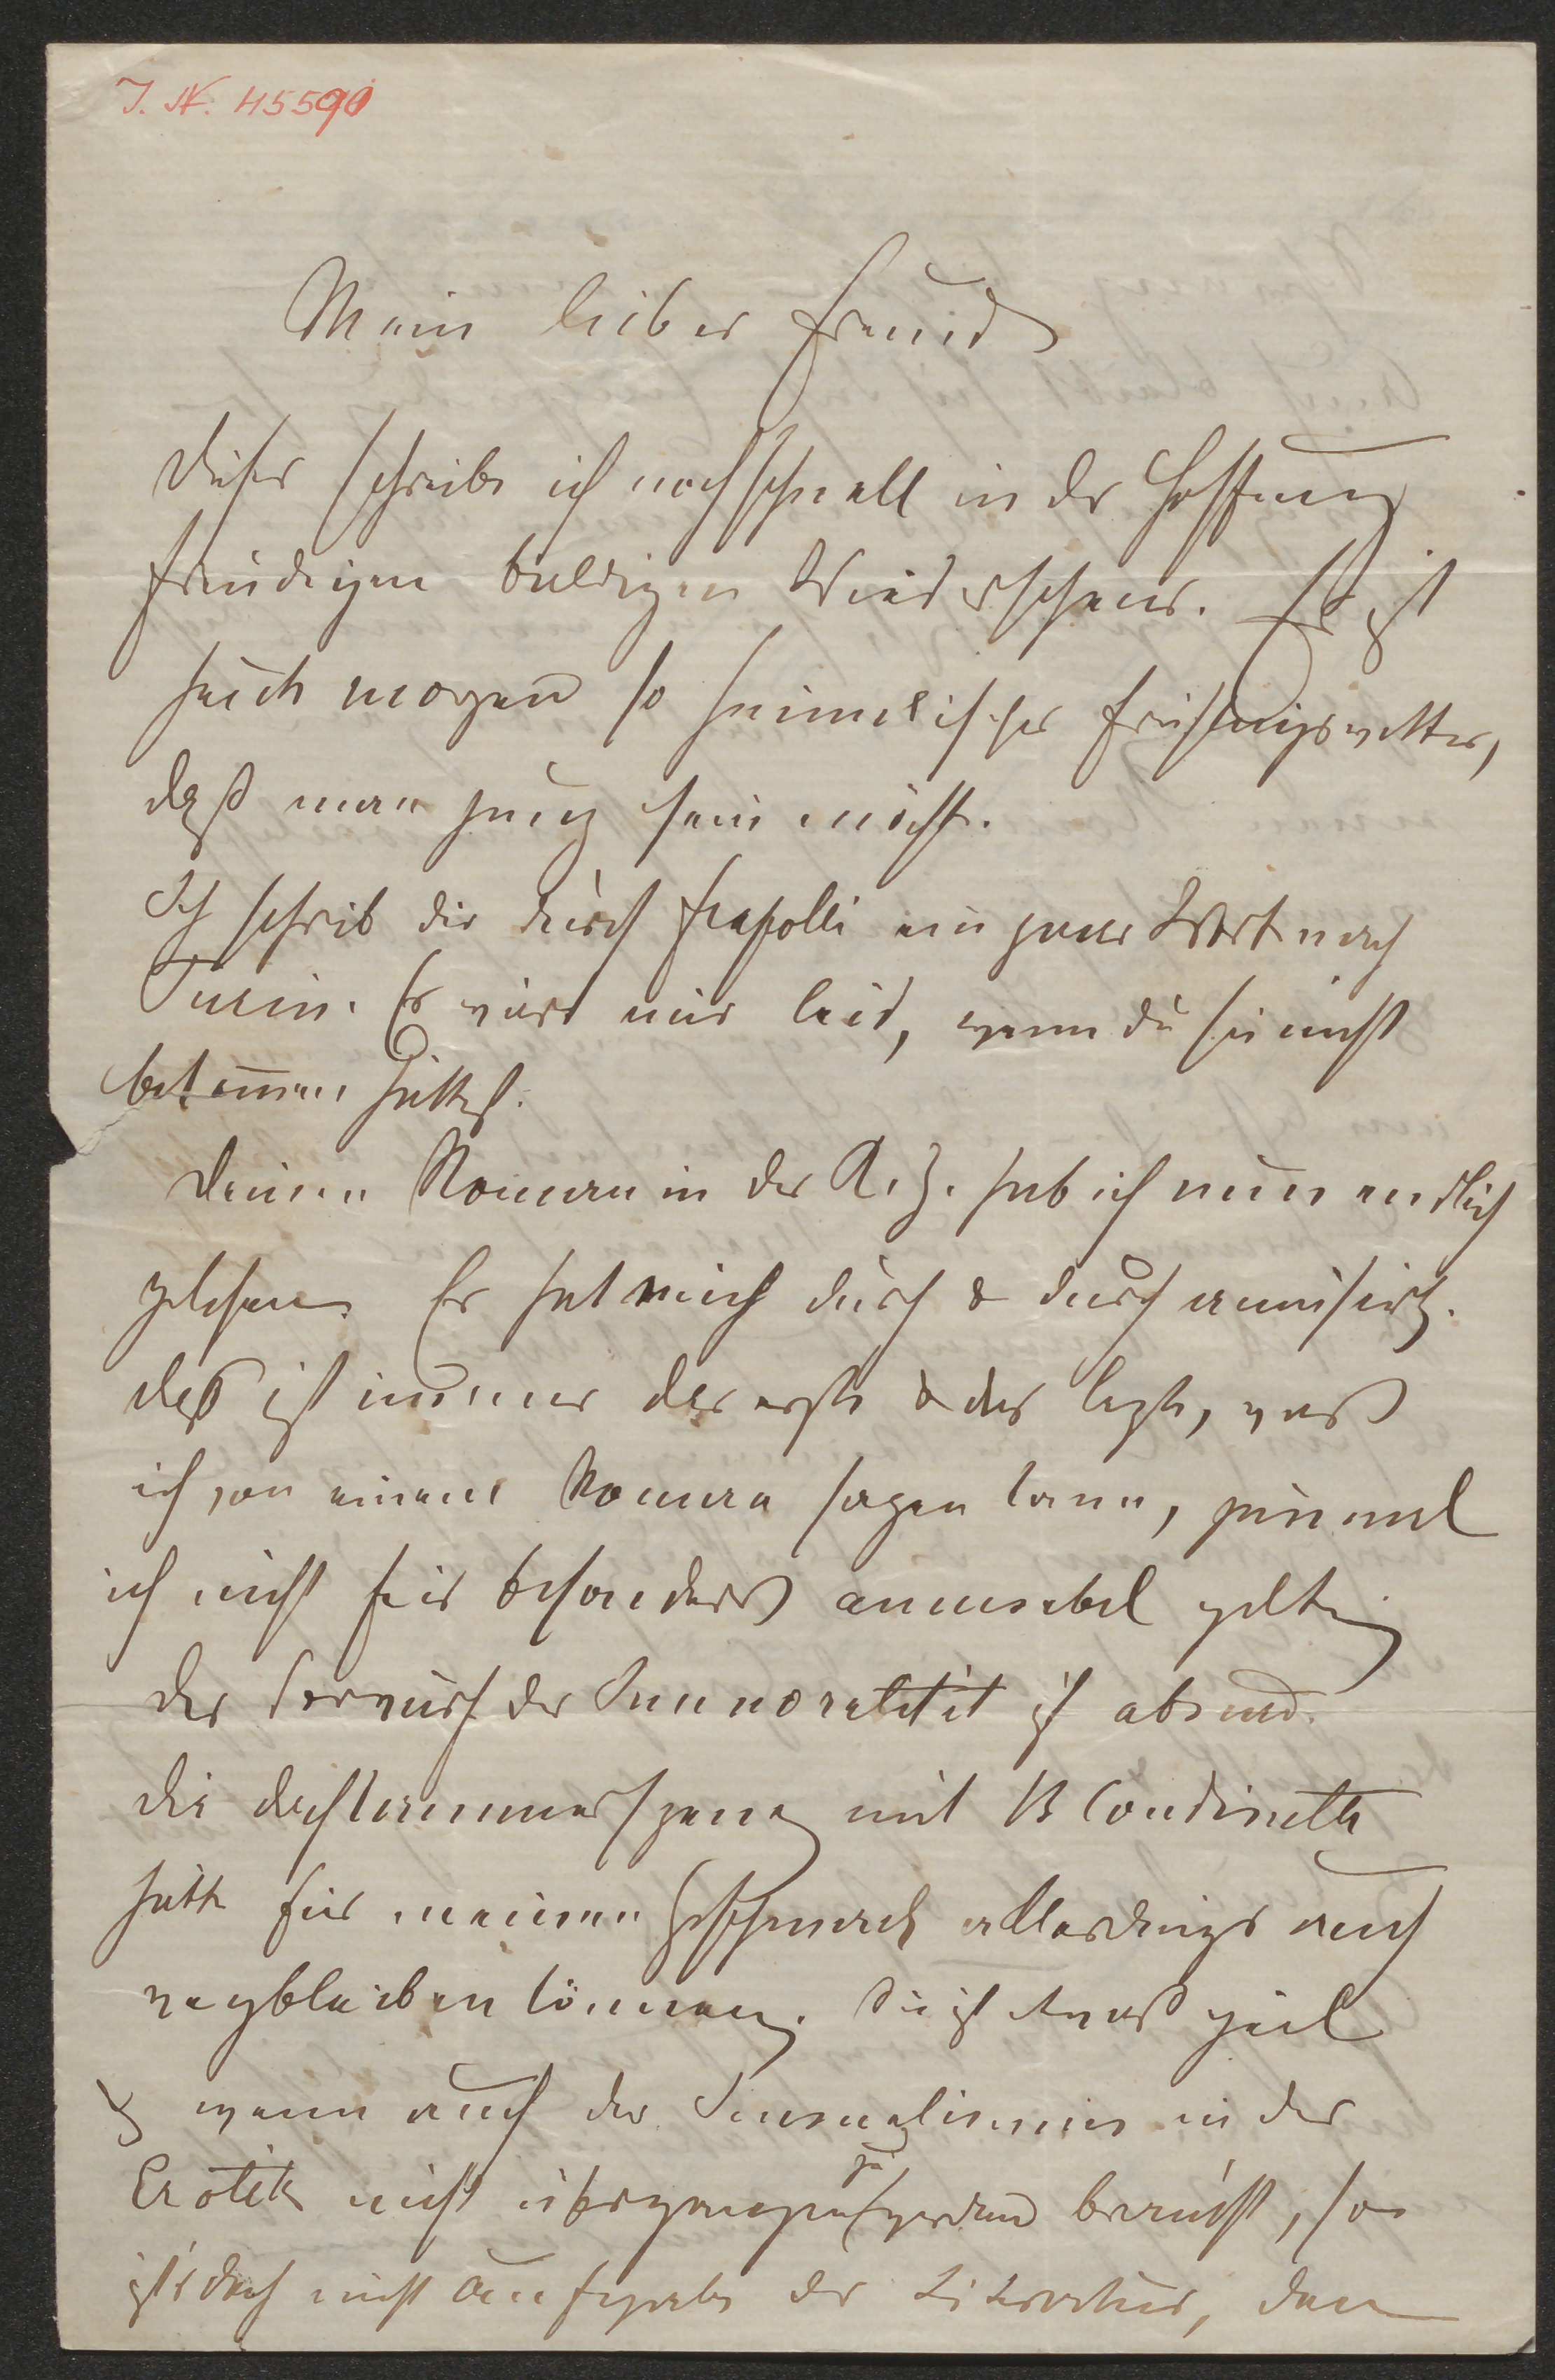 J. N. 45590
Mein lieber Freund
Dieses schreibe ich noch schnell in der Hoffnung
freudigen baldigen Wiedersehens. Es ist
heute morgen so himmlisches Frühlingswetter,
daß man jung sein möchte.
Ich schrieb dir durch Frapolli ein paar Worte nach
Turin. Es wäre mir leid, wenn du sie nicht
bekom̅en hättest.
Deinen Roman in der R. Z. hab ich nun endlich
gelesen. Er hat mich durch & durch amüsirt.
das ist immer das erste & das lezte, was
ich von einem Roman sagen kann, zumal
ich nicht für besonders amusabel gelte.
Der Vorwurf der Immoralität ist absurd.
Die Dachkammerszene mit Blondinette
hätte für meinen Geschmack allerdings auch
wegbleiben können. Sie ist etwas viel
& wenn auch der Sensualismus in der
Erotik nicht übergangen zu werden braucht, so
ist's doch nicht Aufgabe der Literatur, den